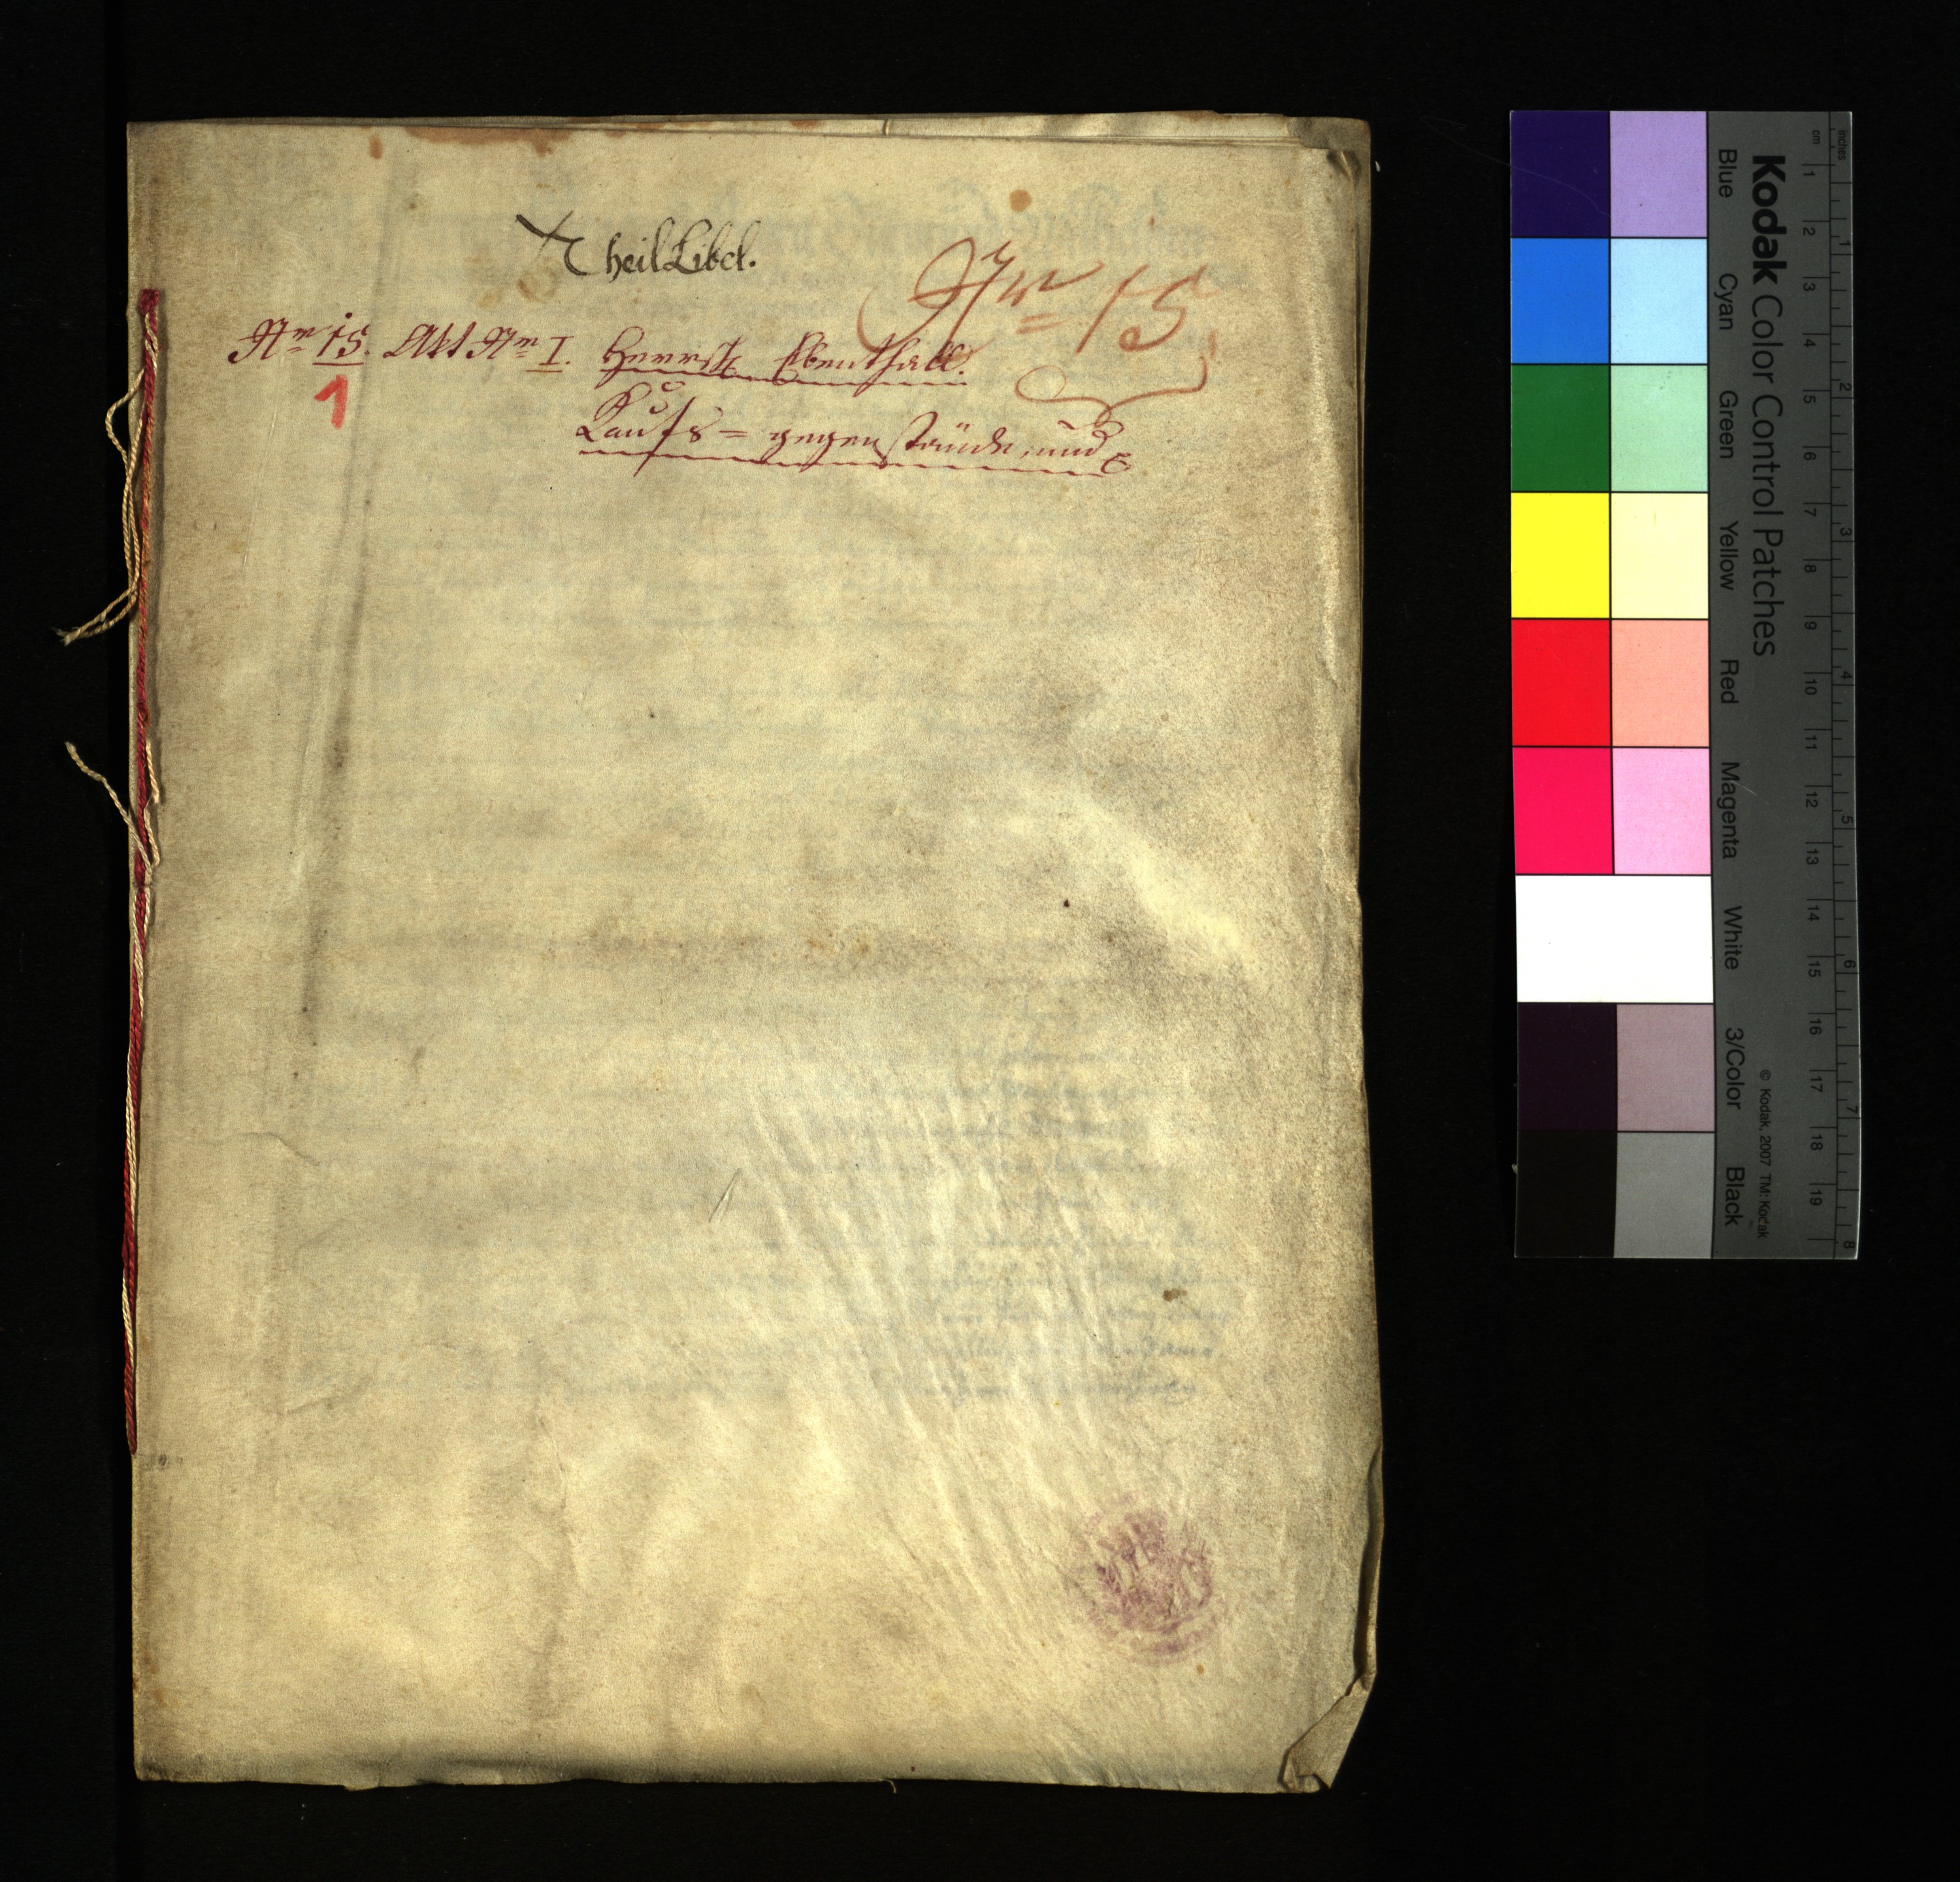 Theil Libel.
Nr 15
Nr 15. Akt Nr I. Herrsch Ebenthall.
1
Kaufs = gegenstände, und
Kodak Color Control Patches
Blue Cyan Green Yellow Red Magenta White 3/Color Black
© Kodak, 2007 TM: Kodak
cm 1 2 3 4 5 6 7 8 9 10 11 12 13 14 15 16 17 18 19
inches 1 2 3 4 5 6 7 8